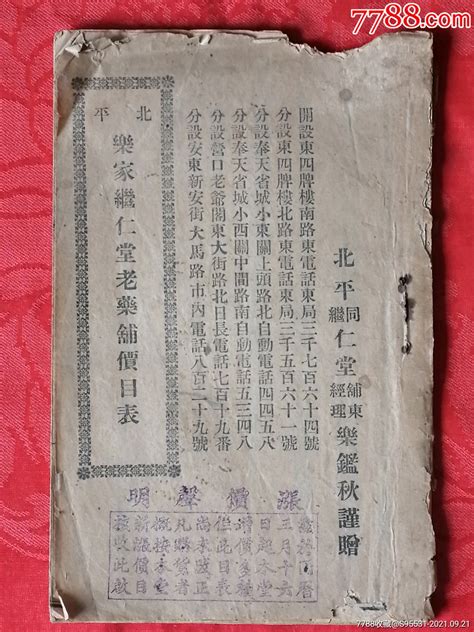 7788.com
北平同繼仁堂舖東經理樂鑑秋謹贈
開設東四牌樓南路東電話東局三千七百六十四號
分設東四牌樓北路東電話東局三千五百六十一號
分設奉天省城小東關上頭路北自動電話四四五八
分設奉天省城小西關中間路南自動電話五三四八
分設營口老爺閣東大街路北日長電話七百十九番
分設安東新安街大馬路市內電話八百二十九號
北平
樂家繼仁堂老藥舖價目表
漲價聲明
茲於國曆
三月十六
日起本堂
增價多種
但此目表
尚未改正
凡購貨者
概按本堂
新漲價目
核收此啟
7788收藏@S95531-2021.09.21